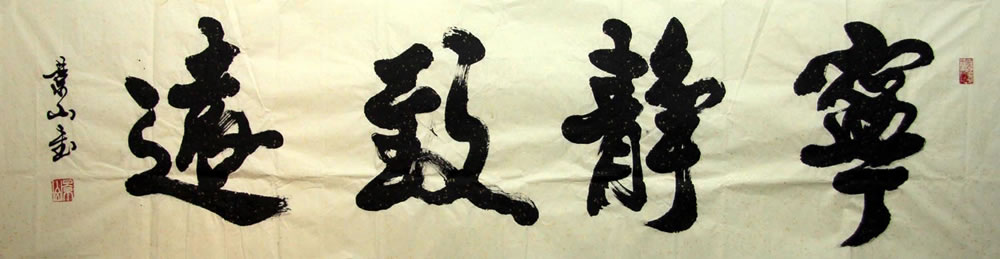 寧靜致遠
景山書